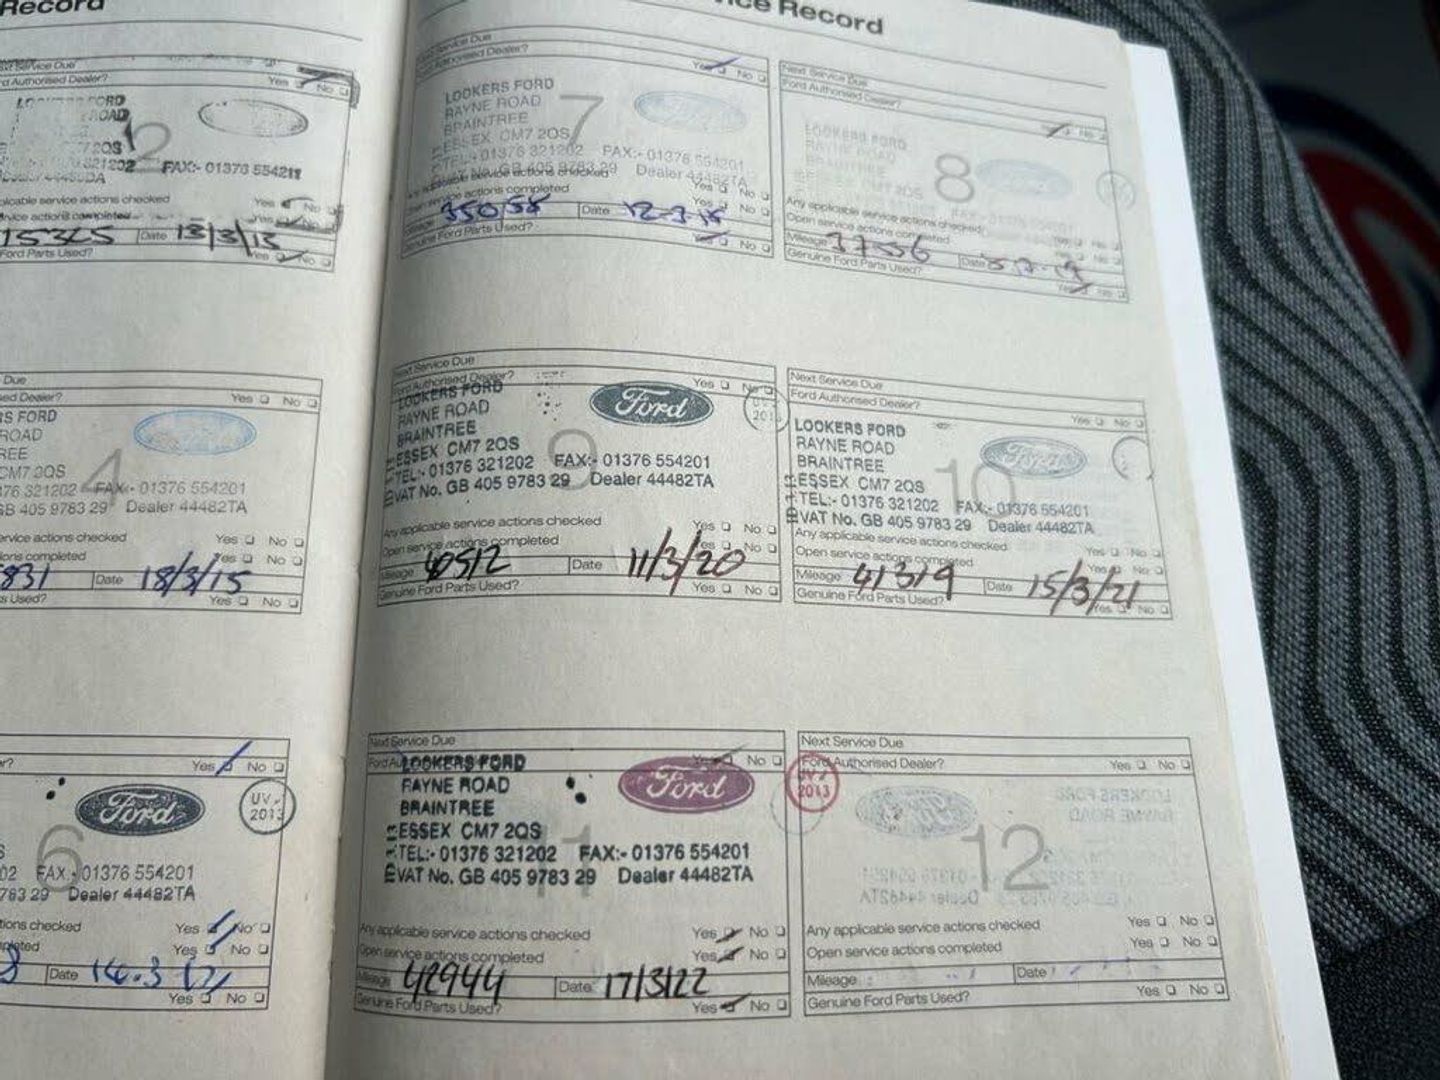 Record
ice Record
Next Service Due
d Authorised Dealer? Yes No
FORD
ROAD
2
321202 FAX:- 01376 554211
plicable service actions checked Yes No
service actions completed Yes No
15325 Date 13/3/13
Ford Parts Used? Yes No
Next Service Due
Ford Authorised Dealer? Yes No
LOOKERS FORD
RAYNE ROAD
BRAINTREE
ESSEX CM7 2QS
7
TEL:- 01376 321202 FAX:- 01376 554201
VAT No. GB 405 9783 29 Dealer 44482TA
Any applicable service actions checked Yes No
Open service actions completed Yes No
Mileage 35058 Date
Genuine Ford Parts Used? Yes No
Next Service Due
Ford Authorised Dealer? No
LOOKERS FORD
RAYNE ROAD
BRAINTREE
ESSEX CM7 2QS
8
Any applicable service actions checked
Open service actions completed
Mileage 37556 Date
Genuine Ford Parts Used? Yes No
Due
sed Dealer? Yes No
S FORD
ROAD
REE
CM7 2QS
4
376 321202 FAX:- 01376 554201
GB 405 9783 29 Dealer 44482TA
ervice actions checked Yes No
ions completed Yes No
831 Date 18/3/15
s Used? Yes No
Next Service Due
Ford Authorised Dealer? Yes No
LOOKERS FORD
RAYNE ROAD
BRAINTREE
Ford
ESSEX CM7 2QS
9
TEL:- 01376 321202 FAX:- 01376 554201
VAT No. GB 405 9783 29 Dealer 44482TA
Any applicable service actions checked Yes No
Open service actions completed Yes No
Mileage 40512 Date 11/3/20
Genuine Ford Parts Used? Yes No
Next Service Due
Ford Authorised Dealer? Yes No
LOOKERS FORD
RAYNE ROAD
BRAINTREE
Ford
ESSEX CM7 2QS
10
TEL:- 01376 321202 FAX:- 01376 554201
VAT No. GB 405 9783 29 Dealer 44482TA
Any applicable service actions checked
Open service actions completed Yes No
Mileage 41319 Date 15/3/21
Genuine Ford Parts Used? Yes No
r? Yes No
Ford
UV
2013
6
02 FAX:- 01376 554201
783 29 Dealer 44482TA
tions checked Yes No
pleted Yes No
8 Date 14.3
Yes No
Next Service Due
Ford Authorised No
LOOKERS FORD
RAYNE ROAD
BRAINTREE
Ford
ESSEX CM7 2QS
11
TEL:- 01376 321202 FAX:- 01376 554201
VAT No. GB 405 9783 29 Dealer 44482TA
Any applicable service actions checked Yes No
Open service actions completed Yes No
Mileage 42944 Date 17/3/22
Genuine Ford Parts Used? Yes No
Next Service Due
Ford Authorised Dealer? Yes No
2013
12
Any applicable service actions checked Yes No
Open service actions completed Yes No
Mileage Date
Genuine Ford Parts Used? Yes No